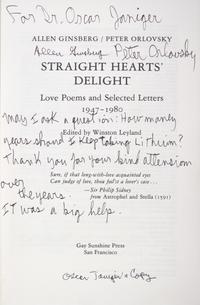 For Dr. Oscar Janiger
ALLEN GINSBERG / PETER ORLOVSKY
Allen Ginsberg Peter Orlovsky
STRAIGHT HEARTS'
DELIGHT
Love Poems and Selected Letters
1947–1980
may I ask a question: How maney
Edited by Winston Leyland
years should I keep taking Lithium?
Thank you for your kind attension
over
Sure, if that long-with-love-acquainted eyes
Can judge of love, thou feel'st a lover's case . . .
—Sir Philip Sidney
the years.
from Astrophel and Stella (1591)
It was a big help.
Gay Sunshine Press
San Francisco
Oscar Janiger's Copy